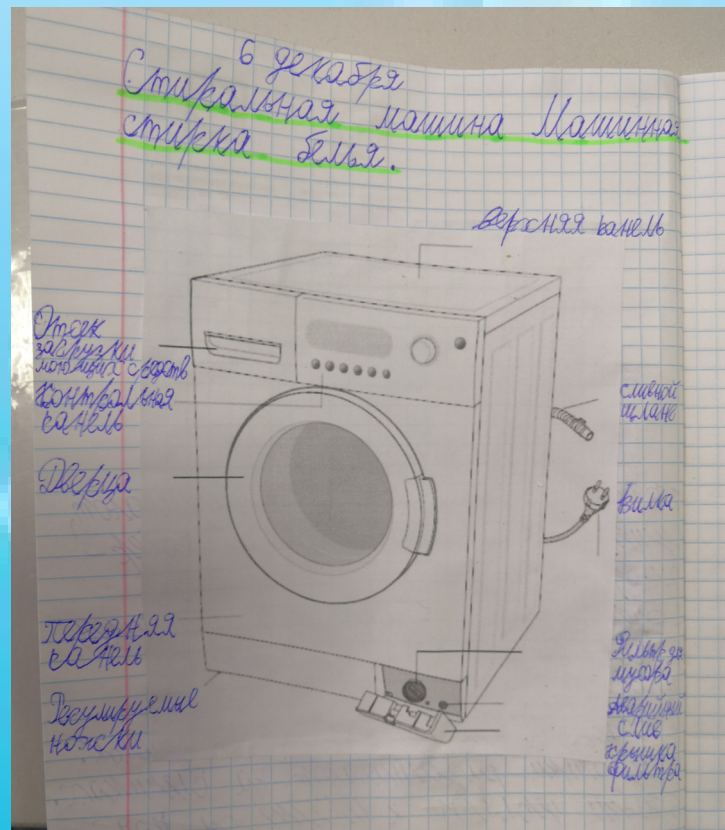 6 декабря
Стиральная машина Машинная
стирка белья.
верхняя панель
Отсек
загрузки
моющих средств
контрольная
панель
Дверца
передняя
панель
Регулируемые
ножки
сливной
шланг
вилка
Фильтр для
мусора
аварийный
слив
крышка
фильтра